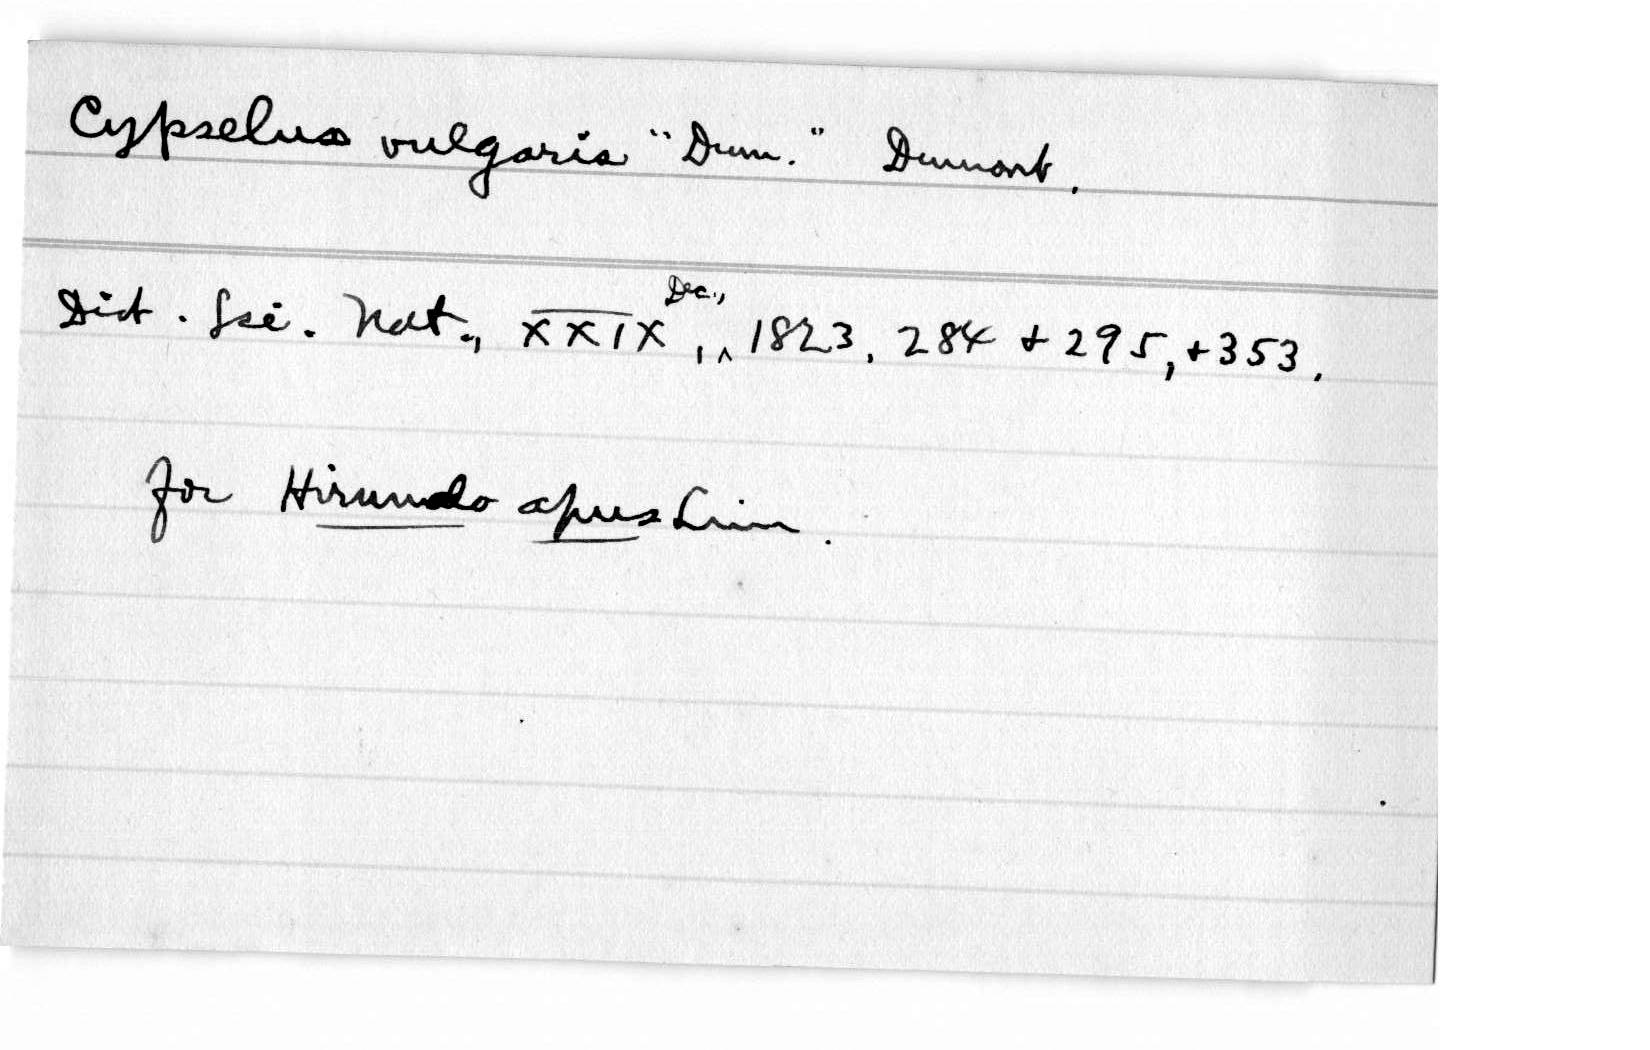 Cypselus vulgaris "Dum." Dumont.
Dict. Sci. Nat., XXIX, Dec., 1823, 284 + 295, + 353.
for Hirundo apus Linn.